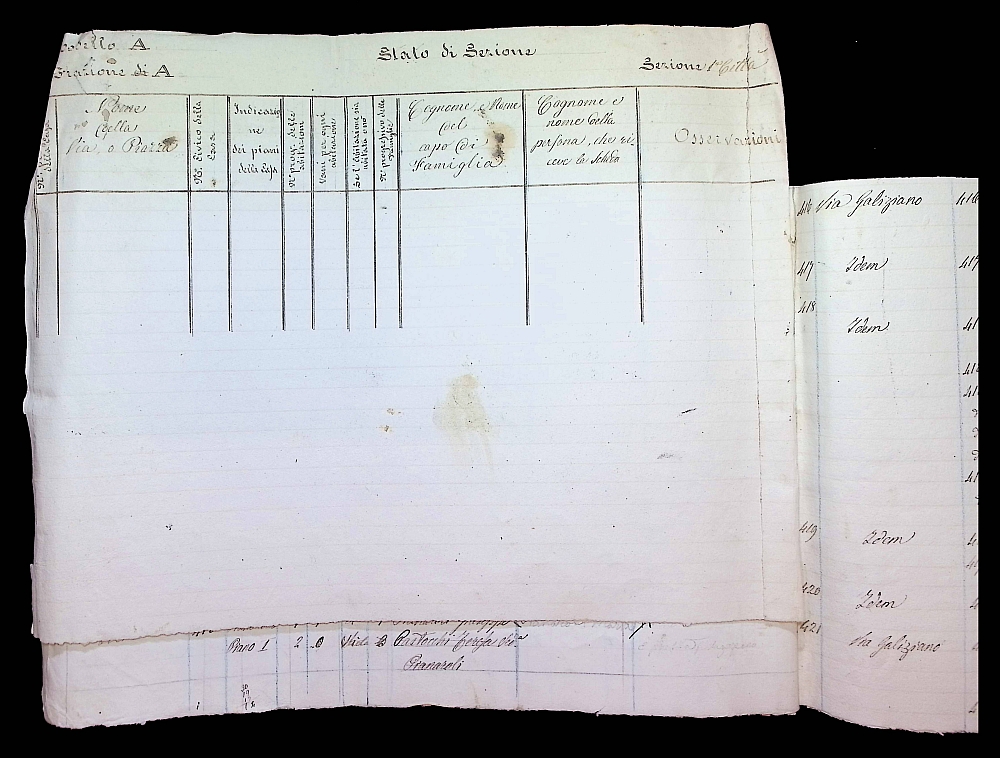 Modello A
Frazione di A
Stato di Sezione
Sezione 1ª Città
della Casa
Nome
della
Via o Piazza
N.º Civico della
Casa
Indicazio
ne
dei piani
della Casa
N.º progr. delle
abitazioni
Vani per ogni
abitazione
Se l'abitazione sia
abitata o no
N.º progressivo delle
famiglie
Cognome e Nome
del
capo di
Famiglia
Cognome e
nome della
persona, che ri-
ceve la Scheda
Osservazioni
416 Via Galiziano 416
417 Idem 417
418
Idem 41
41
41
41
419
Idem
420
Idem
421
Via Galiziano
Piano 1 2